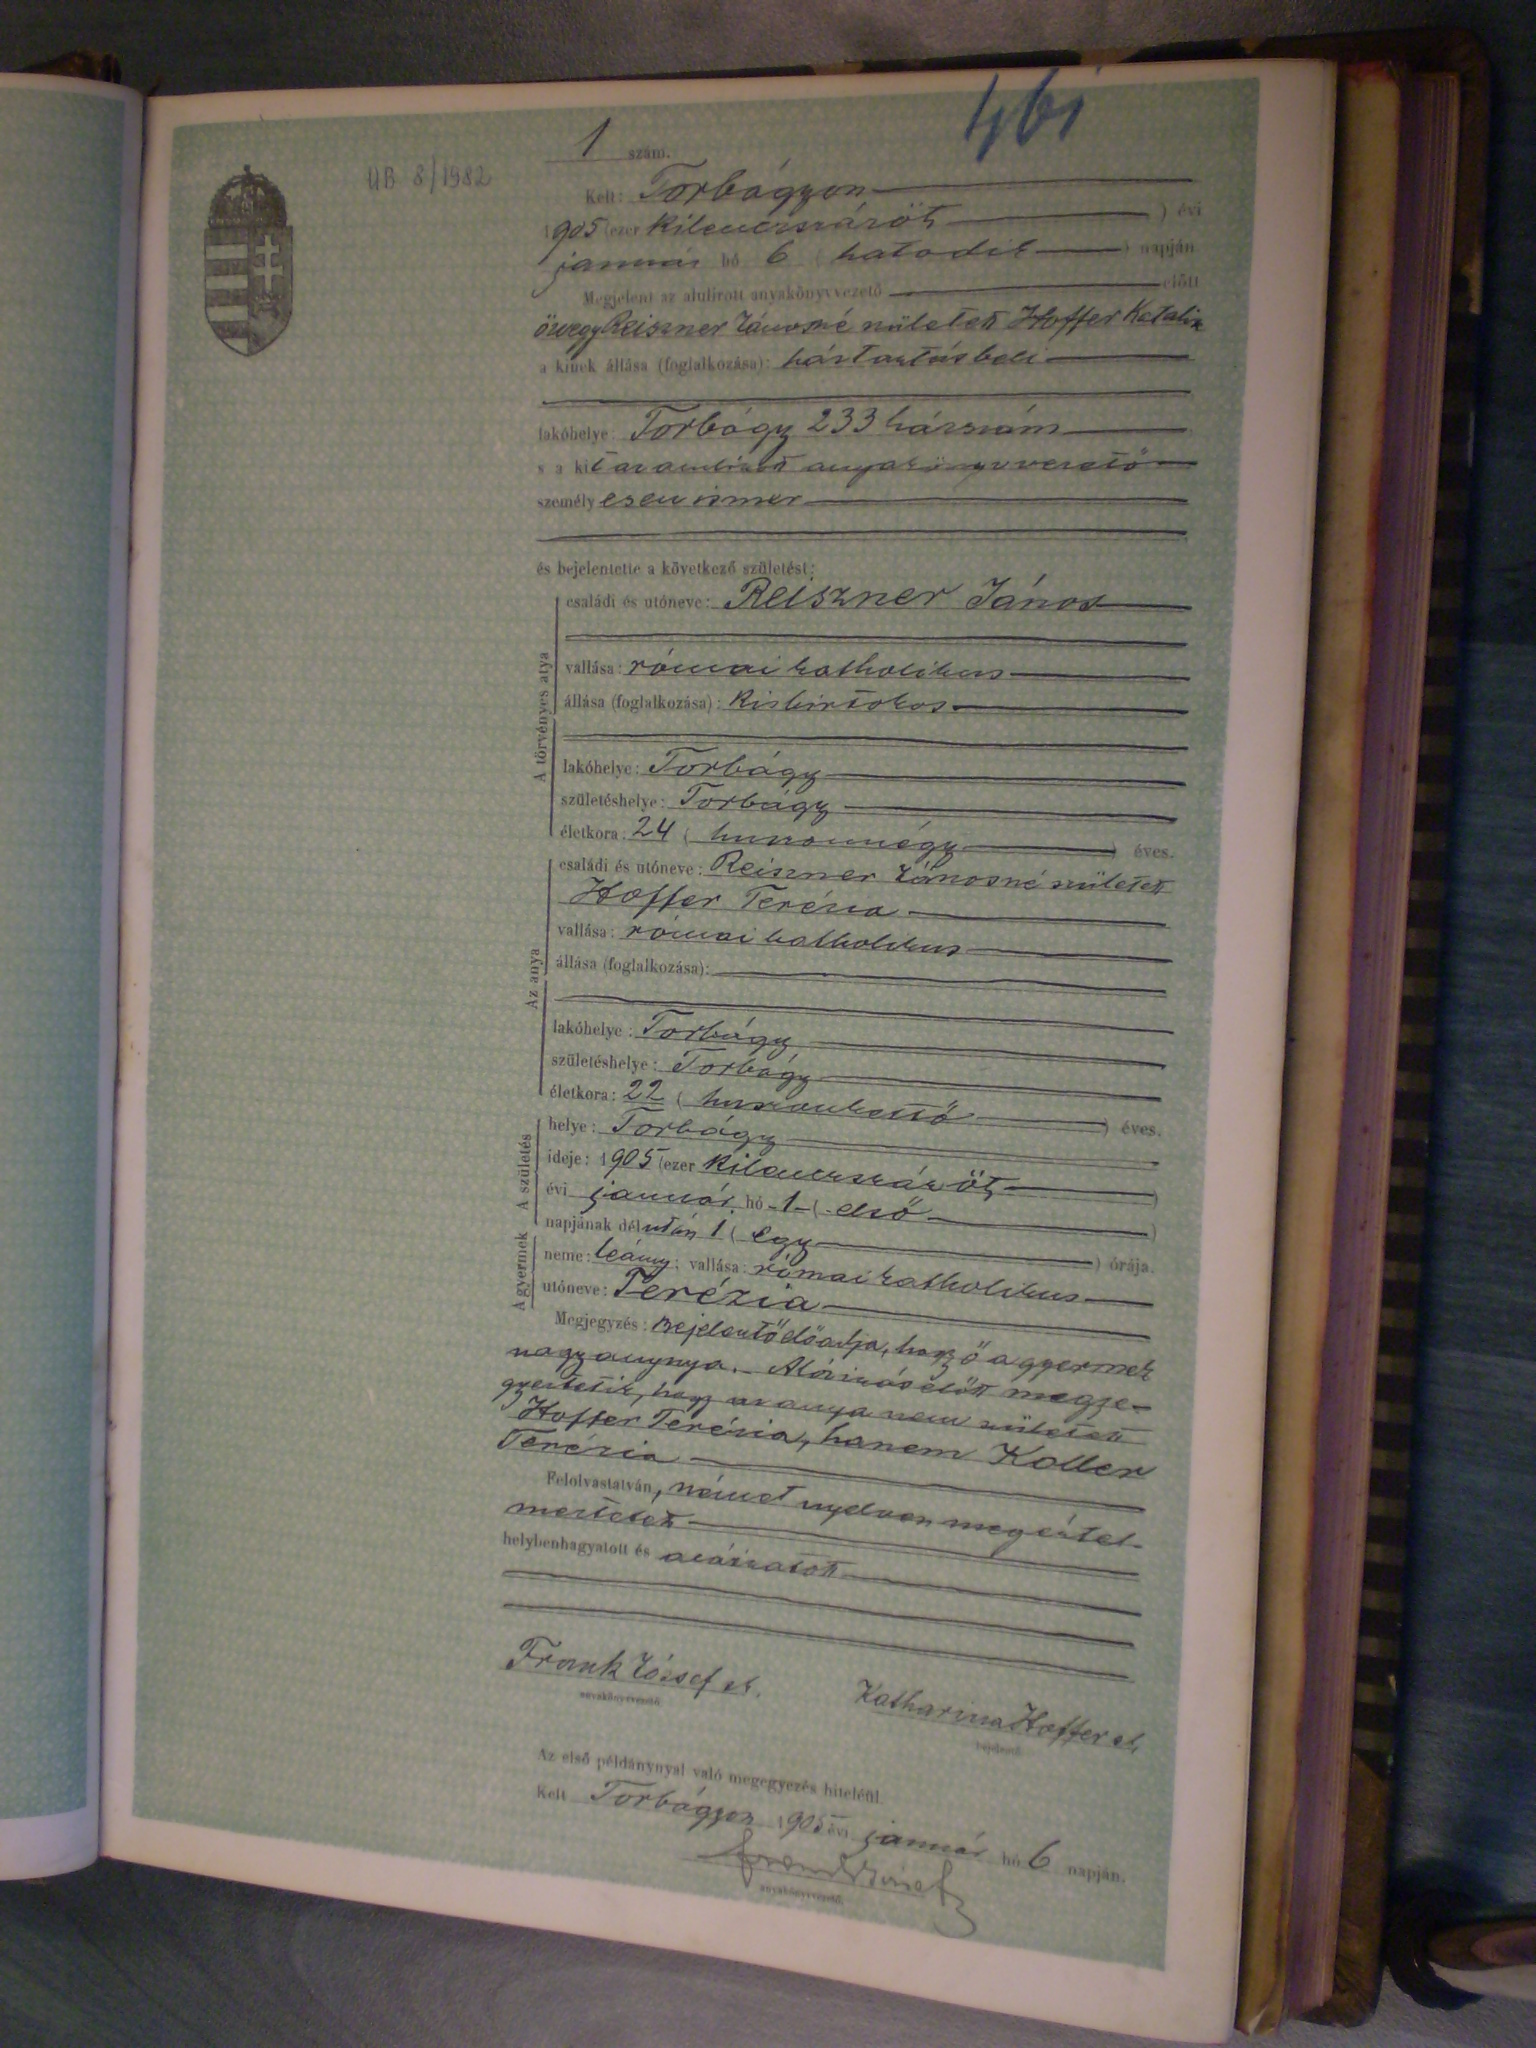 461
ÜB 8/1982
1 szám.
Kelt: Torbágyon
1905 (ezer kilenczszáröt ) évi
január hó 6 ( hatodik ) napján
Megjelent az alulirott anyakönyvvezető előtt
özvegy Reiszner Jánosné született Hoffer Katalin
a kinek állása (foglalkozása): háztartásbeli
lakóhelye: Torbágy 233 házszám
s a kit az alulirott anyakönyvvezető
személyesen ismer
és bejelentette a következő születést:
A törvényes atya
családi és utóneve: Reiszner János
vallása: római katholikus
állása (foglalkozása): kisbirtokos
lakóhelye: Torbágy
születéshelye: Torbágy
életkora: 24 ( huszonnégy ) éves.
Az anya
családi és utóneve: Reiszner Jánosné született
Hoffer Terézia
vallása: római katholikus
állása (foglalkozása):
lakóhelye: Torbágy
születéshelye: Torbágy
életkora: 22 ( huszonkettő ) éves.
A születés
helye: Torbágy
ideje: 1905 (ezer kilenczszáz öt )
évi január hó -1- ( -első )
napjának délután 1 ( egy ) órája.
A gyermek
neme: leány; vallása: római katholikus
utóneve: Terézia
Megjegyzés: Bejelentő előadja, hogy ő a gyermek
nagyanynya. Aláirás előtt megje-
gyeztetik, hogy az anya nem született
Hoffer Terézia, hanem Koller
Terézia
Felolvastatván, német nyelven megértel-
meztetett
helybenhagyatott és aláiratott
Frank József sk.
anyakönyvvezető.
Katharina Hoffer sk.
bejelentő.
Az első példánynyal való megegyezés hiteléül.
Kelt Torbágyon 1905 évi január hó 6 napján.
Frank József
anyakönyvvezető.